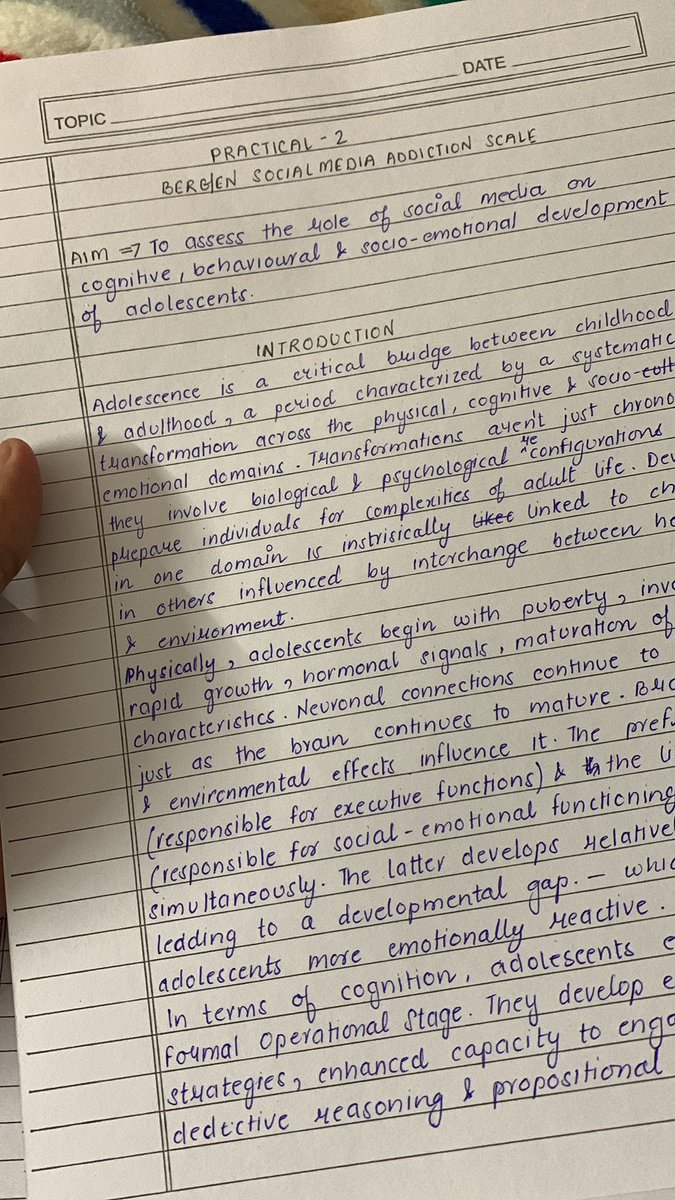 TOPIC DATE
PRACTICAL - 2
BERGEN SOCIAL MEDIA ADDICTION SCALE
AIM => To assess the role of social media on
cognitive, behavioural & socio-emotional development
of adolescents.
INTRODUCTION
Adolescence is a critical bridge between childhood
& adulthood, a period characterized by a systematic
transformation across the physical, cognitive & socio-
emotional domains. Transformations aren't just
they involve biological & psychological re configurations
prepare individuals for complexities of adult life.
in one domain is instrisically linked to
in others influenced by interchange between
& environment.
Physically, adolescents begin with puberty,
rapid growth, hormonal signals, maturation of
characteristics. Neuronal connections continue to
just as the brain continues to mature.
& environmental effects influence it. The
(responsible for executive functions) & the
(responsible for social-emotional functioning
simultaneously. The latter develops
leading to a developmental gap. –
adolescents more emotionally reactive.
In terms of cognition, adolescents
formal Operational Stage. They develop
strategies, enhanced capacity to
dedective reasoning & propositional